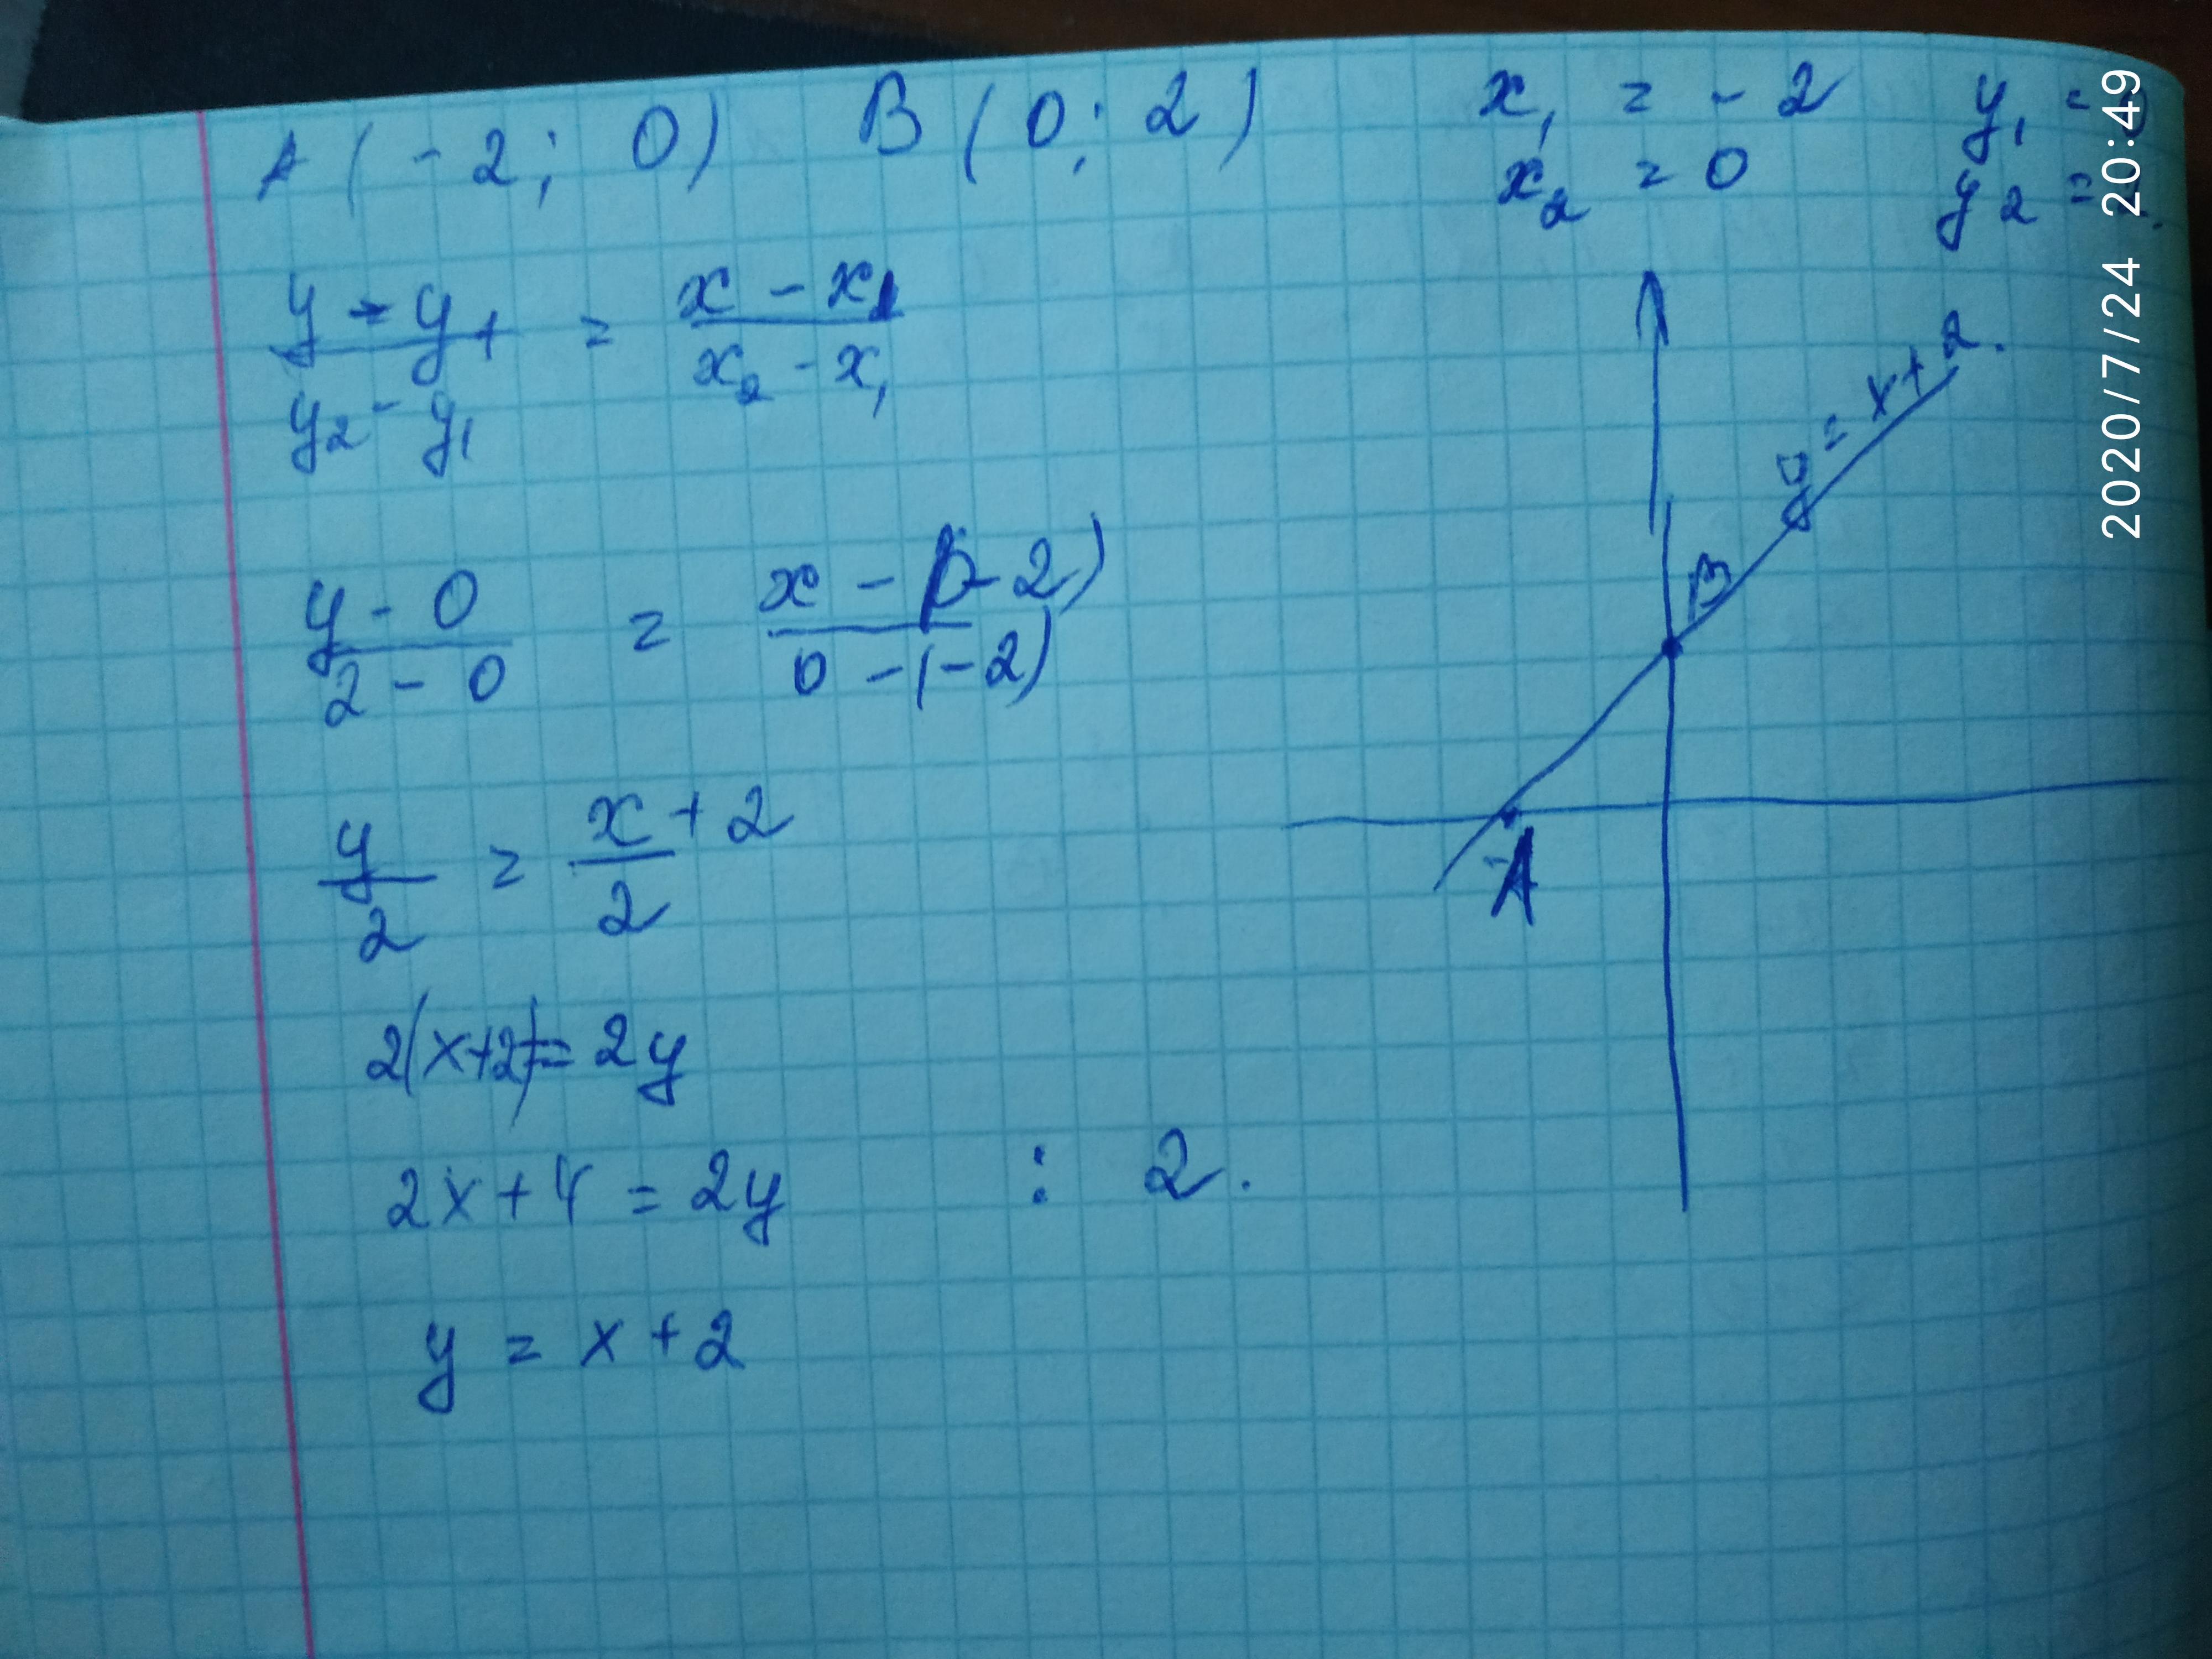 A (-2; 0) B (0; 2)
x₁ = -2 y₁ =
x₂ = 0 y₂ =
(y - y₁)/(y₂ - y₁) = (x - x₁)/(x₂ - x₁)
(y - 0)/(2 - 0) = (x - (-2))/(0 - (-2))
y/2 = (x + 2)/2
2(x+2) = 2y
2x + 4 = 2y : 2.
y = x + 2
y = x + 2.
B
A
2020/7/24 20:49